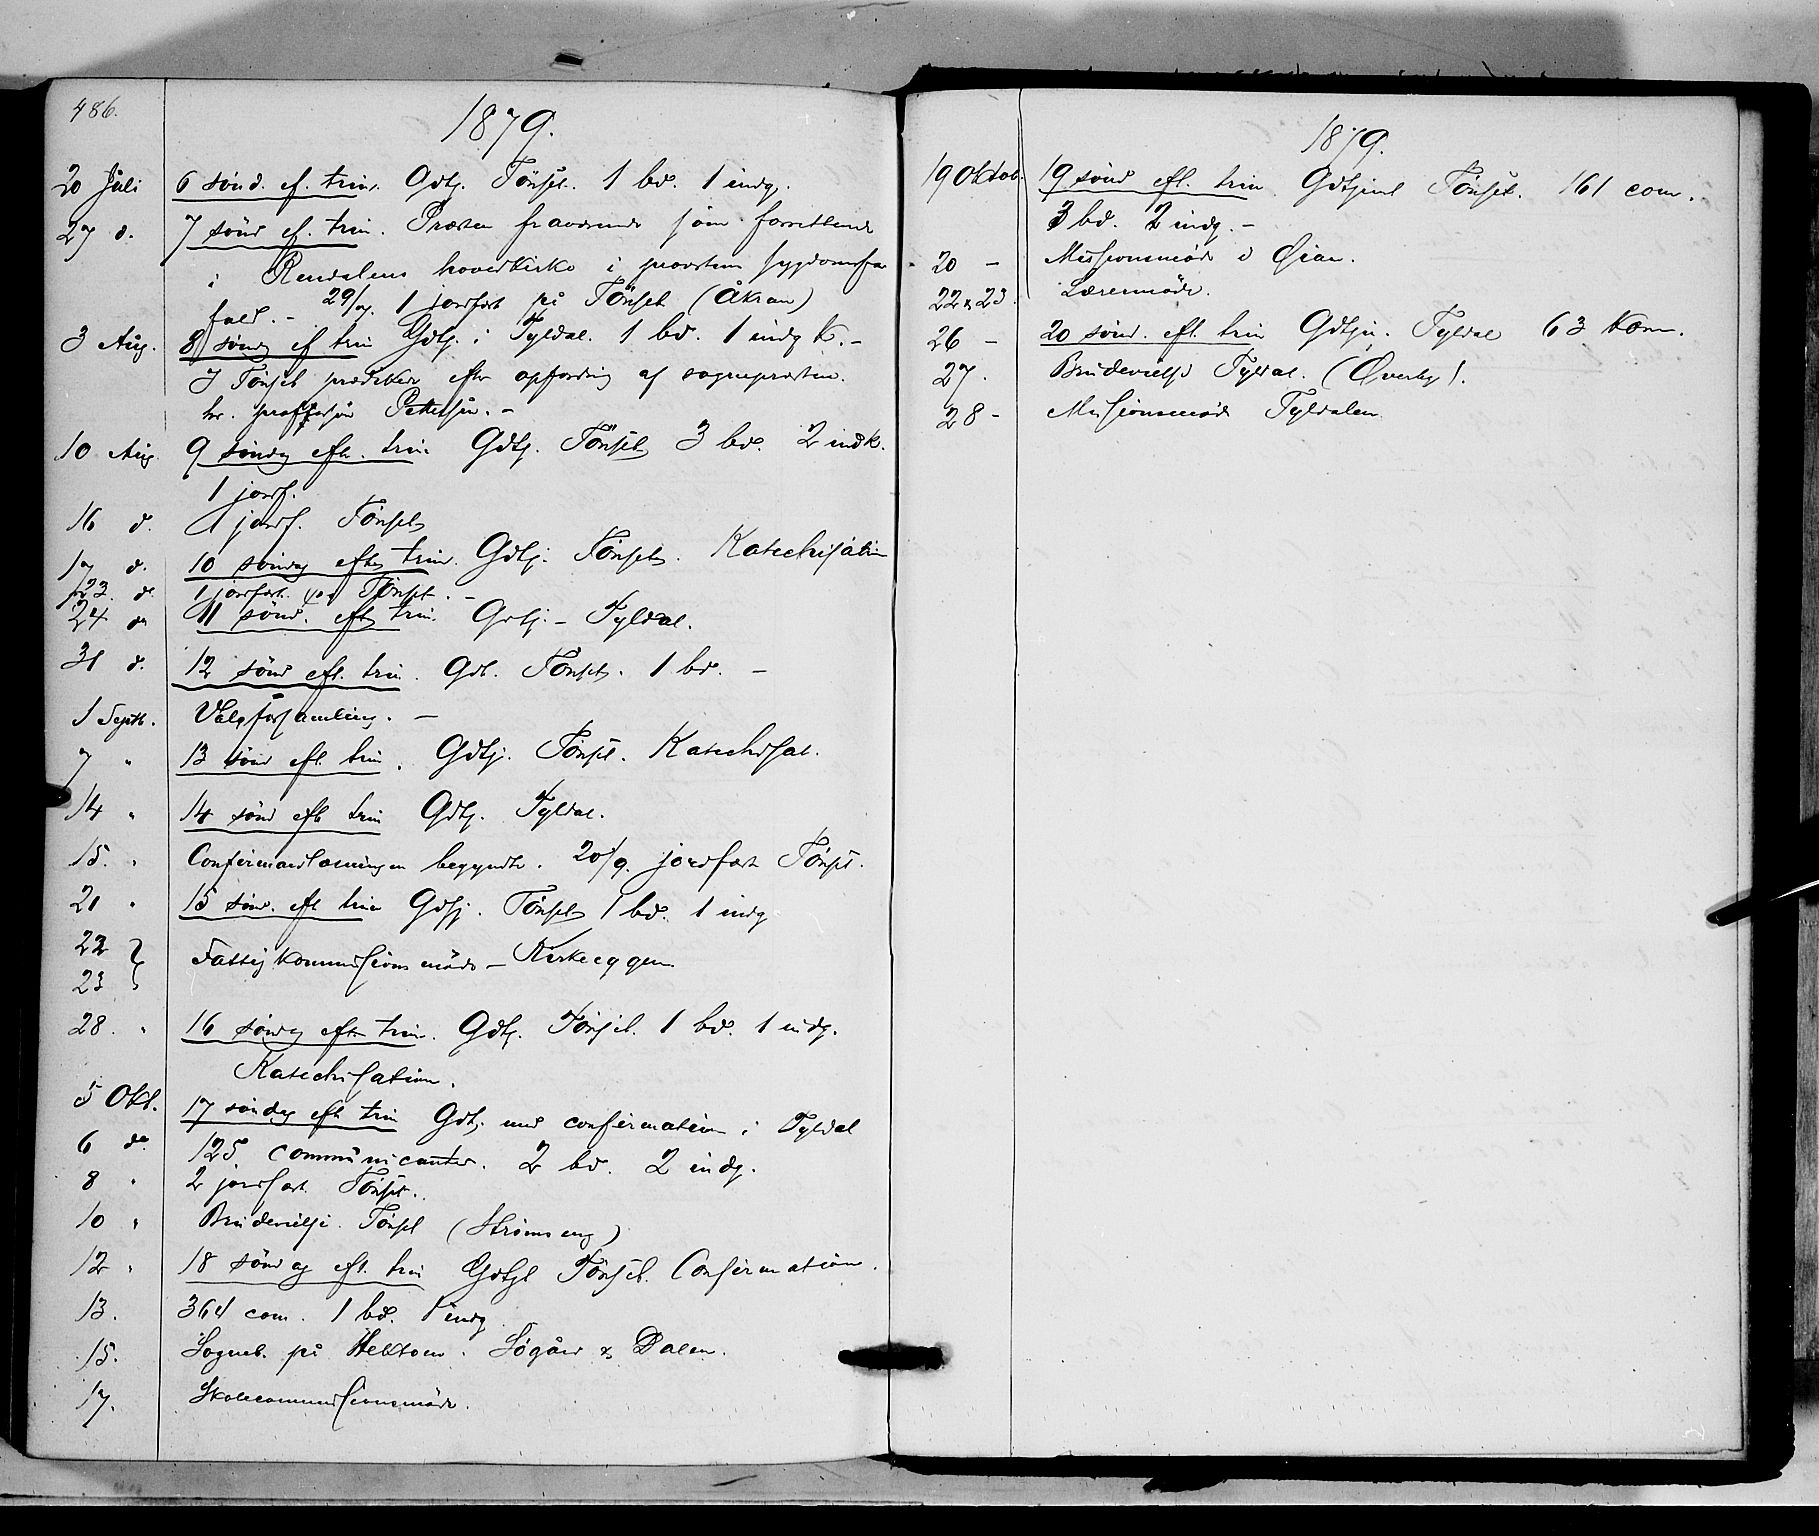 486.
1879.
20 Juli 6 sönd. ef. trin. Gdtj. Tönset. 1 bd. 1 indg.
27 d. 7 sönd ef. trin. Præsten fraværende som forrettende
i Rendalens hovedkirke i provstens sygdomsfor
fald. – 29/7. 1 jordfæst på Tönset (Åkran)
3 Aug. 8 söndag ef trin Gdtj. i Tyldal. 1 bd. 1 indg K. –
I Tönset prædiker efter opfordring af sognepræsten
hr. professor Petersen. –
10 Aug. 9 söndag eft. trin Gdtj. Tönset 3 bd. 2 indk.
1 jordf.
16 d. 1 jordf. Tönset
17 d. 10 söndag efter trin. Gdtj. Tönset. Katechisation
23. d. 1 jordfæst. Tönset. –
24 d. 11 sönd. efter trin. Gdtj. – Tyldal.
31 d. 12 sönd eft. trin. Gdt. Tönset. 1 bd. –
1 Septb. Valgforsamling. –
7 " 13 sönd eft trin. Gdtj. Tönset. Katechisat.
14 " 14 sönd eft trin Gdtj. Tyldal.
15. " Confirmandlæsningen begyndte. 20/9. jordfæst Tönset.
21 " 15 sönd. eft trin Gdtj. Tönset 1 bd. 1 indg
22 }
23 } Fattigkommissionsmöde – Kirkeeggen.
28. " 16 söndag efter trin. Gdtj. Tönset. 1 bd. 1 indg.
Katechisation.
5 Okt. 17 söndag eft trin Gdtj. med confirmation i Tyldal
6 d. 125 communicanter. 2 bd. 2 indg.
8 " 2 jordfæst. Tönset.
10 " Brudevielse. Tönset (Strömseng)
12 " 18 söndag eft. trin Gdtjt Tönset. Confirmation.
13. 364 com. 1 bd. 1 indg
15. Sogneb. på Hektoen. Sögård & Dalen.
17. Skolecommissionsmöde.
1879.
19 Oktob. 19 sönd eft. trin Gdtjent Tönset. 161 com.
3 bd. 2 indg. –
20 – Missionsmöde i Öian.
22 & 23. Læremöde.
26 – 20 sönd. eft. trin Gdtjn. Tyldal 63 kom.
27. Brudevielse Tyldal. (Øverby).
28 – Missionsmöde Tyldalen